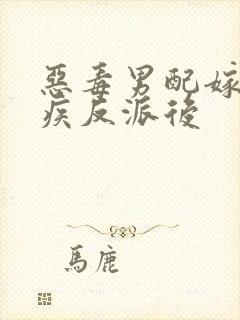 惡毒男配嫁
疾反派後
馬鹿